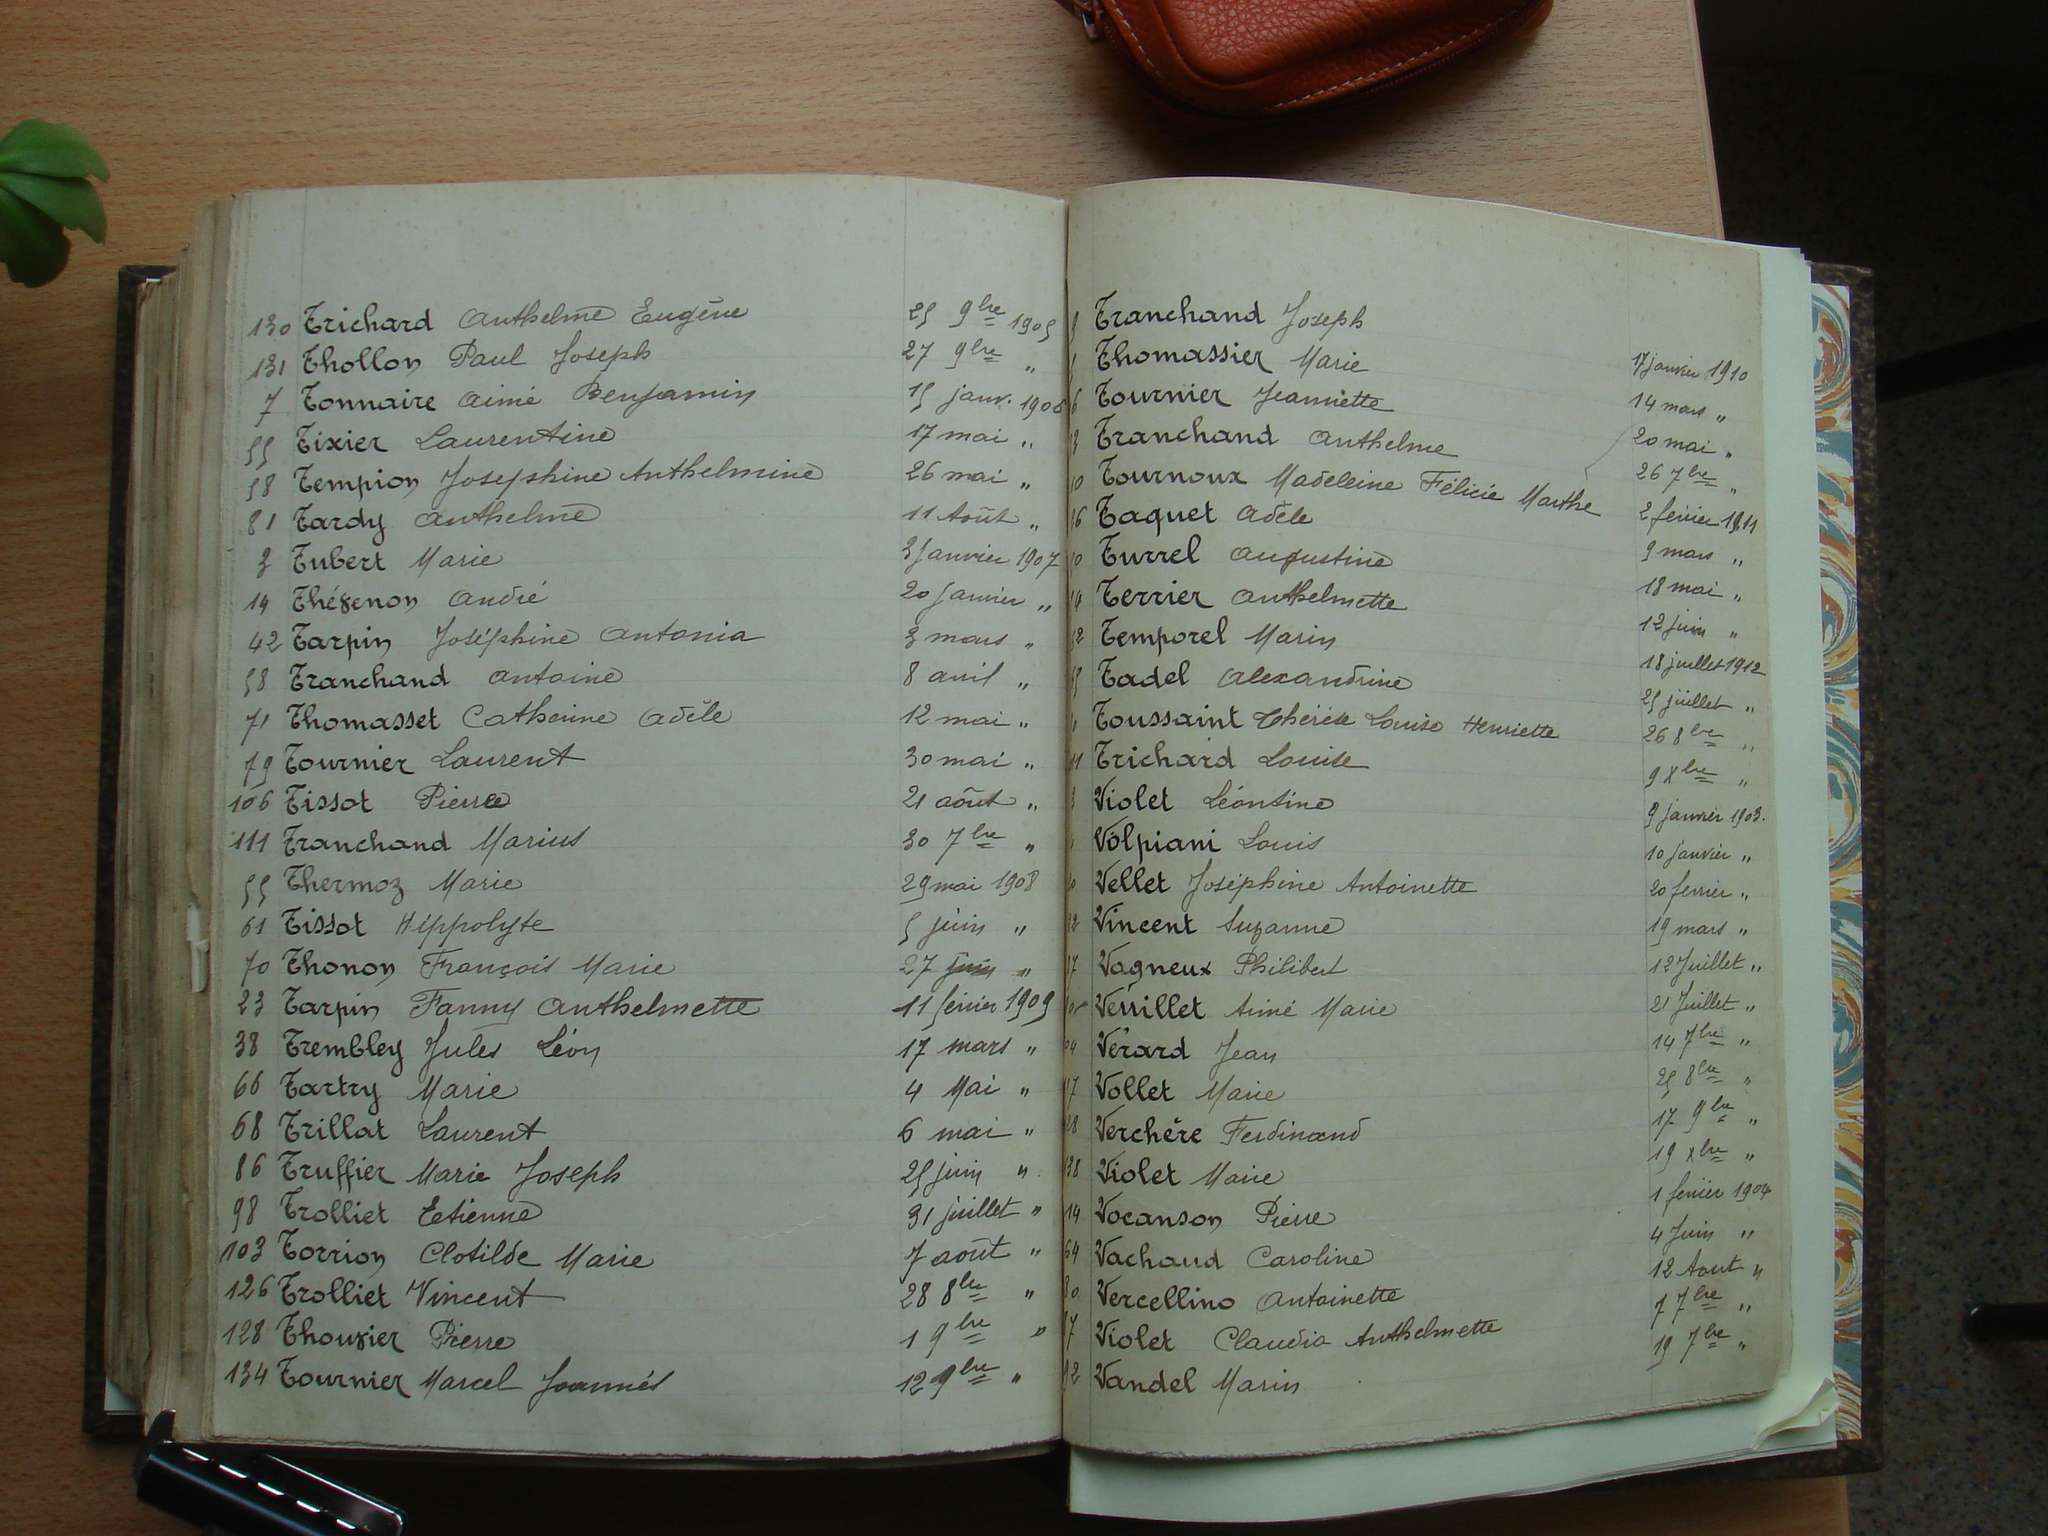 130 Trichard Anthelme Eugène 25 9bre 1905
131 Thollon Paul Joseph 27 9bre "
7 Tonnaire Aimé Benjamin 15 janv. 1906
55 Tixier Laurentine 17 mai "
58 Tempion Joséphine Anthelmine 26 mai "
81 Tardy Anthelme 11 Août "
3 Tubert Marie 3 Janvier 1907
19 Thévenon André 20 Janvier "
42 Tarpin Joséphine Antonia 3 mars "
58 Tranchand Antoine 8 avril "
71 Thomasset Catherine Adèle 12 mai "
79 Tournier Laurent 30 mai "
106 Tissot Pierre 21 août "
111 Tranchand Marius 30 7bre "
55 Thermoz Marie 29 mai 1908
61 Tissot Hippolyte 5 juin "
70 Thonon François Marie 27 juin "
23 Tarpin Fanny Anthelmette 11 février 1909
38 Trembley Jules Léon 17 mars "
66 Tartry Marie 4 Mai "
68 Trillat Laurent 6 mai "
86 Truffier Marie Joseph 25 juin "
98 Trolliet Etienne 31 juillet "
103 Torrion Clotilde Marie 7 août "
126 Trolliet Vincent 28 8bre "
128 Thouzier Pierre 1 9bre "
134 Tournier Marcel Joannès 12 9bre "
Tranchand Joseph 17 janvier 1910
Thomassier Marie 14 mars "
Tournier Jeannette 20 mai "
Tranchand Anthelme 26 7bre "
Tournoux Madeleine Félicie Marthe 2 février 1911
Taquet Adèle 9 mars "
Turrel Augustine 18 mai "
Terrier Anthelmette 12 juin "
Temporel Marin 18 juillet 1912
Tadel Alexandrine 25 juillet "
Toussaint Thérèse Louise Henriette 26 8bre "
Trichard Louise 9 Xbre "
Violet Léontine 9 janvier 1903.
Volpiani Louis 10 janvier "
Vellet Joséphine Antoinette 20 février "
Vincent Suzanne 19 mars "
Vagneux Philibert 12 Juillet "
Veuillet Aimé Marie 21 Juillet "
Vérard Jean 14 7bre "
Vollet Marie 25 8bre "
Verchère Ferdinand 17 9bre "
Violet Marie 19 Xbre "
14 Vocanson Pierre 1 février 1904
64 Vachaud Caroline 4 Juin "
80 Vercellino Antoinette 12 Aout "
87 Violet Claudia Anthelmette 7 7bre "
92 Vandel Marin 19 7bre "